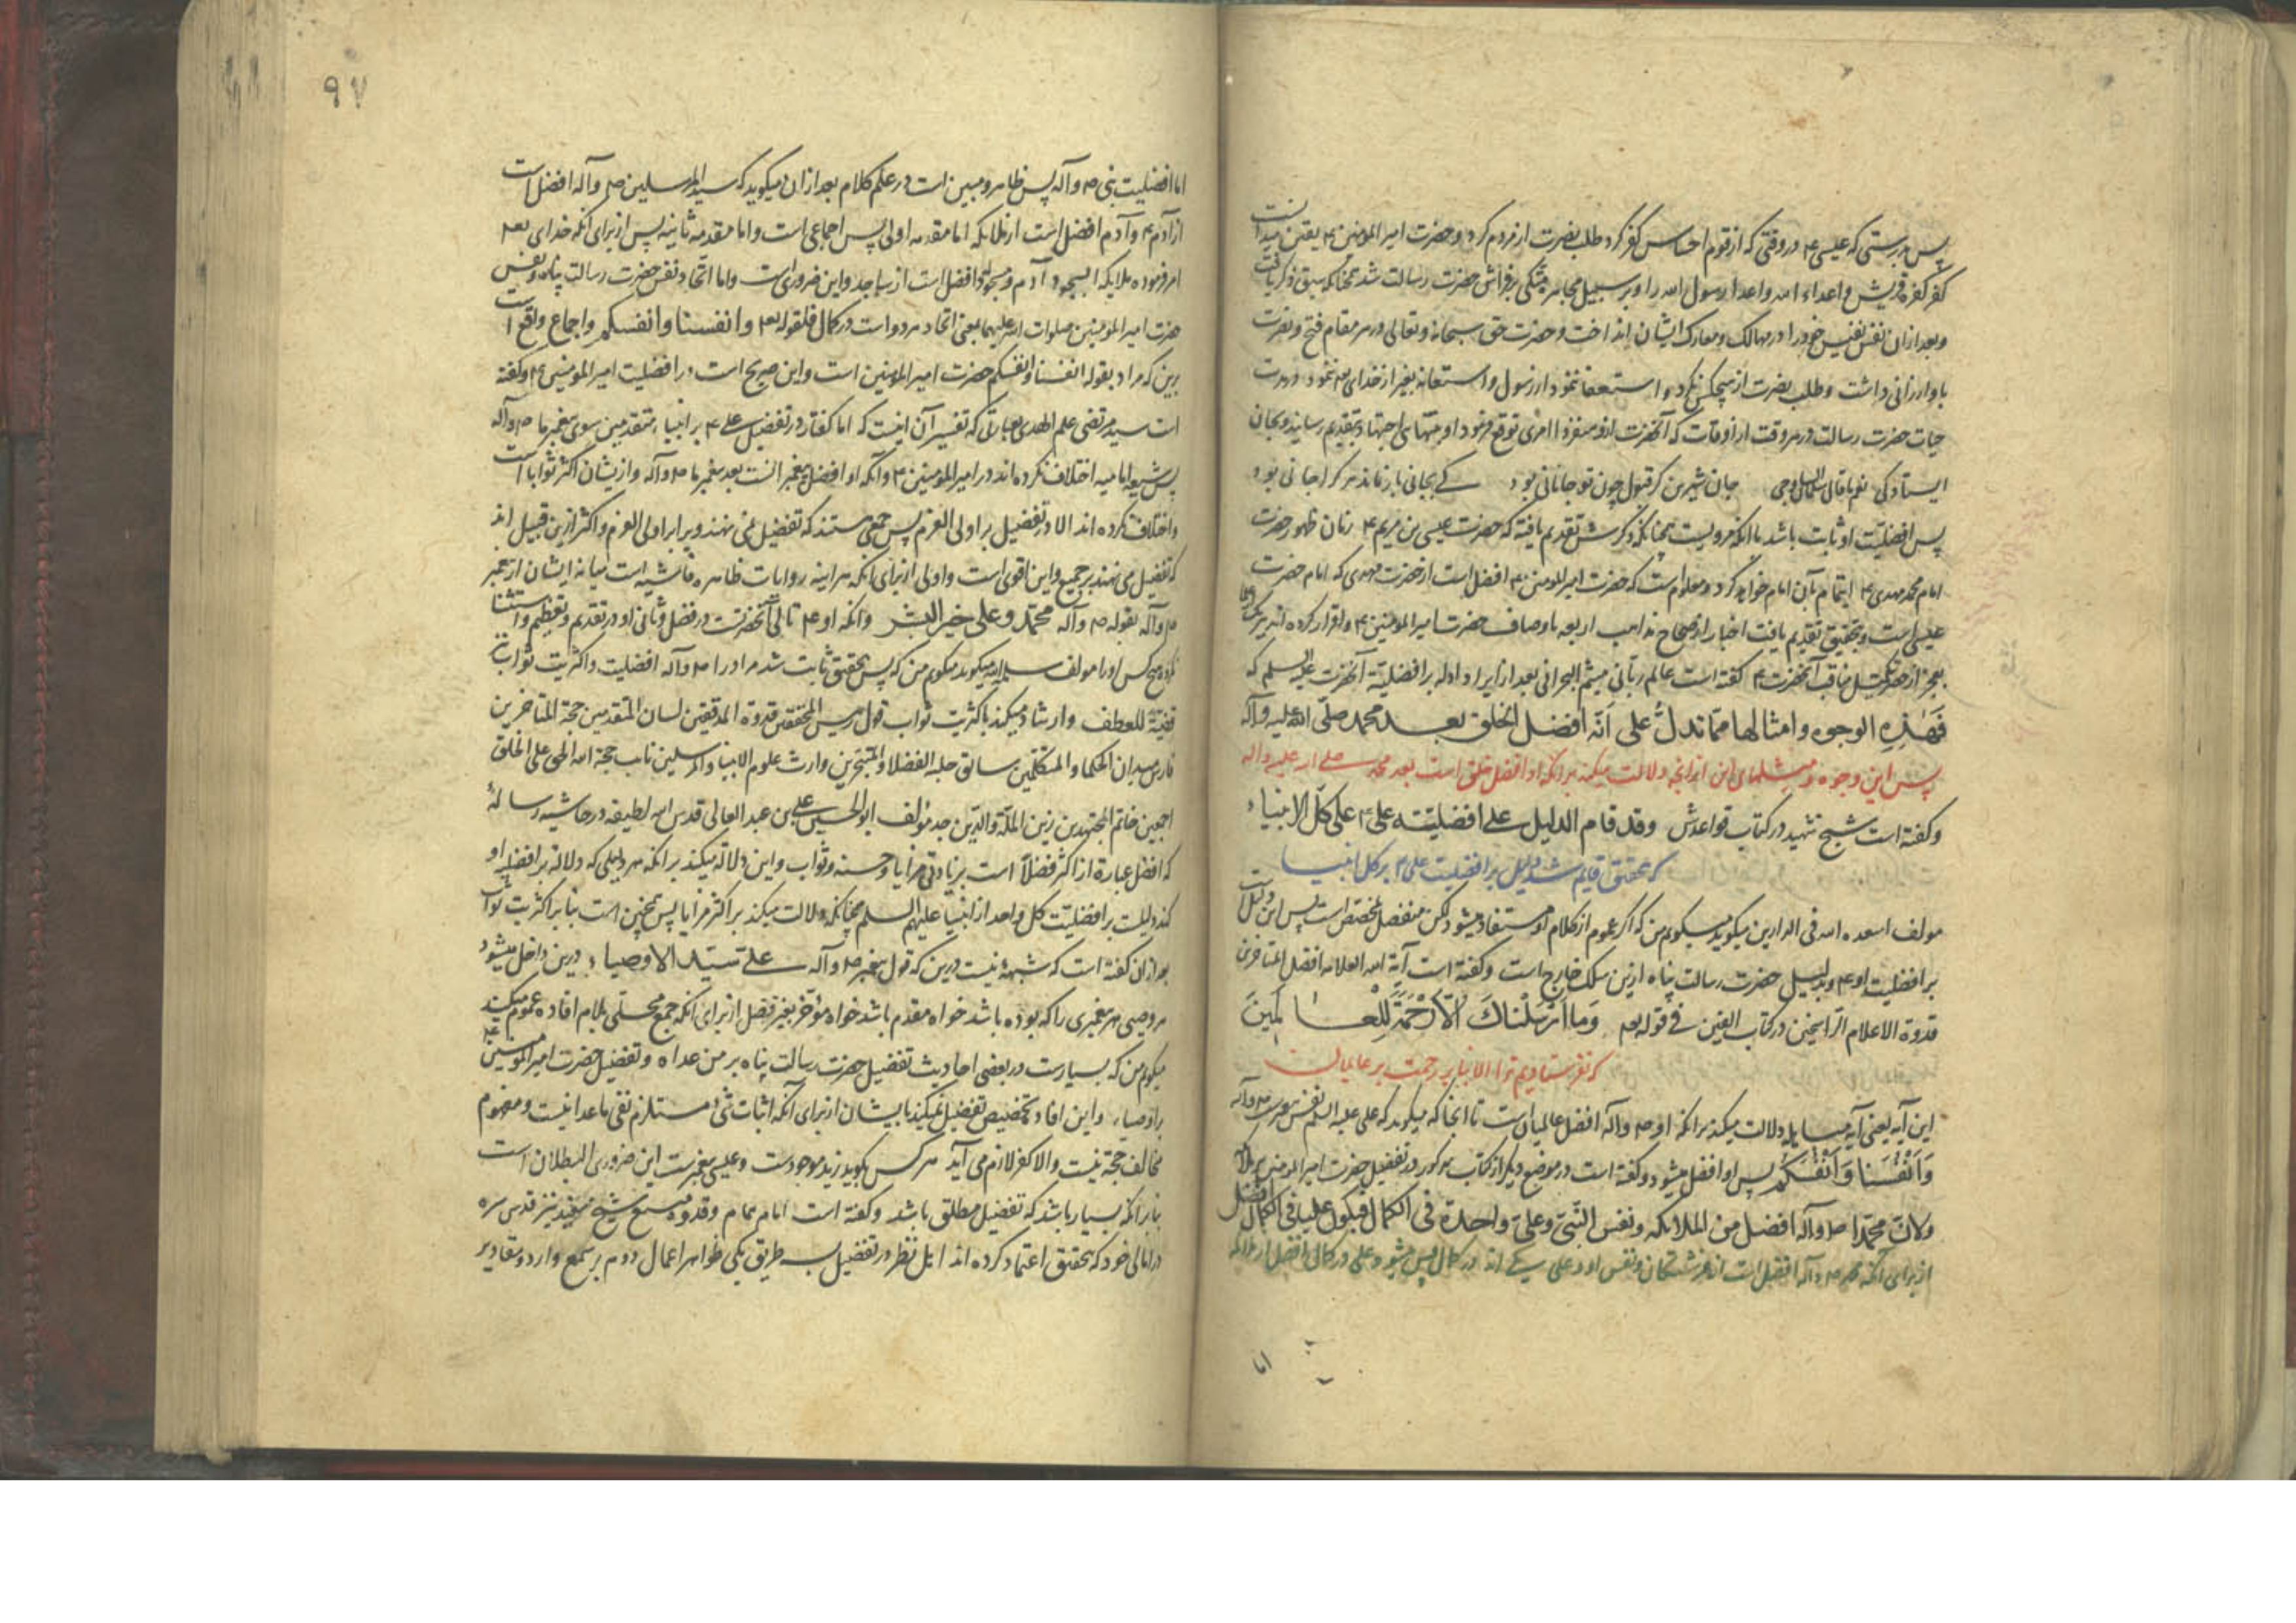 پس بدرستی که عیسی ۴ در وقتی که از قوم احساس کفر کرد طلب نصرت از مردم کرد و حضرت امیر المومنین ۴ یقین میدانست
کفر کفره قریش و اعداء الله و اعداء رسول الله را و بر سبیل مجاهره متکی بر فراش حضرت رسالت شد چنانکه سبق ذکر یافت
و بعد ازان نفس نفیس خود را در مهالک و معارک ایشان انداخت و حضرت حق سبحانه و تعالی در هر مقام فتح و نصرت
باو ارزانی داشت و طلب نصرت از هیچکس نکرد و استعفا ننمود از رسول و استعانه بغیر از خدای تعه ننمود و در مدت
حیات حضرت رسالت در هر وقت از اوقات که آنحضرت ازو سفر و امری توقع فرمود او منتهای اجتهاد بتقدیم رسانید و بجان
ایستادگی نمود جان شیرین گر قبول چون تو جانانی بود کی بجانی باز ماند هر کرا جانی بود
پس افضلیت او ثابت باشد با آنکه مرویست چنانکه ذکرش تقدیم یافته که حضرت عیسی بن مریم ۴ زمان ظهور حضرت
امام محمد مهدی ۴ ایتمام بآن امام خواهد کرد و معلوم است که حضرت امیر المومنین ۴ افضل است از حضرت مهدی که امام حضرت
عیسی است و بتحقیق تقدیم یافت اخبار از صحاح مذاهب اربعه باوصاف حضرت امیر المومنین ۴ و اقرار کرده اند
بعجز از حصر مناقب آنحضرت ۴ گفته است عالم ربانی میثم البحرانی بعد از ایراد ادله بر افضلیة آنحضرت علیه السلم که
فَهٰذِهِ الوجوه و امثالها ممّا تدلّ علی انّه افضل الخلق بعد محمد صلّی الله علیه وآله
پس این وجوه و مثلهای این از آنچه دلالت میکند بر آنکه او افضل خلق است بعد محمد صلی الله علیه وآله
و گفته است شیخ شهید در کتاب قواعدش وقد قام الدلیل علی افضلیته علی ۴ علی کلّ الانبیاء
که بتحقیق قایم شد دلیل بر افضلیت علی ۴ بر کل انبیا
مولف اسعده الله فی الدارین میکوید میکویم من که اگر عموم از کلام او مستفاد میشود لکن منفصل مخصص است پس این دلیل
بر افضلیت او ۴ و بدلیل حضرت رسالت پناه ازین سلک خارج است و گفته است آیة الله العلامه افضل المتاخرین
قدوة الاعلام الراسخین در کتاب الفین فی قوله تعه وَمَا اَرْسَلْنَاكَ اِلَّا رَحْمَةً لِلْعَالَمِينَ
که نفرستادیم ترا الا بنا بر رحمت بر عالمیان
این آیه یعنی آیه مباهله دلالت میکند بر آنکه او ص وآله افضل عالمیان است تا آنجا که میکوید که علی علیه السلم نفس
وَاَنْفُسَنَا وَاَنْفُسَكُمْ پس او افضل میشود و گفته است در موضع دیگر از کتاب مذکور در تفضیل حضرت امیر المومنین بر ملائکه
ولان محمّدا ص وآله افضل من الملائکه ونفس النّبی وعلیّ واحدة فی الکمال فیکون علیا فی الکمال افضل
از برای آنکه محمد ص وآله افضل است از فرشتگان و نفس او و علی یکی اند در کمال پس میشود علی در کمال افضل از ملائکه
اما
۹۷
اما افضلیت نبی ص وآله پس ظاهر و مبین است در علم کلام بعد ازان میکوید که سید المرسلین ص وآله افضل است
از آدم ۴ و آدم افضل است از ملائکه اما مقدمه اولی پس اجماعی است و اما مقدمه ثانیه پس از برای آنکه خدای تعه
امر فرموده ملایکه السجود آدم و مسجود افضل است از ساجد و این ضروری است و اما اتحاد نفس حضرت رسالت پناه و نفس
حضرت امیر المومنین صلوات الله علیهما بمعنی اتحاد هر دو است در کمال فلقوله تعه وانفسنا وانفسکم و اجماع واقع است
برین که مراد بقوله انفسنا وانفسکم حضرت امیر المومنین است و این صریح است در افضلیت امیر المومنین ۴ و گفته
است سید مرتضی علم الهدی بعبارتی که تفسیر آن اینست که اما گفتار در تفضیل علی ۴ بر انبیاء متقدمین سوی پیغمبر ما ص وآله
پس شیعه امامیه اختلاف نکرده اند در امیر المومنین ۴ و آنکه او افضل بعد پیغمبر ما ص وآله و از یشان اکثر ثوابا است
و اختلاف کرده اند الا در تفضیل بر اولی العزم پس جمعی هستند که تفضیل نمی نهند ویرا بر اولی العزم و اکثر ازین قبیل اند
که تفضیل می نهند بر جمیع و این اقوی است و اولی از برای آنکه هر آینه روایات ظاهره فاشیه است میانه ایشان از پیغمبر
ص وآله بقوله ص وآله محمّد وعلی خیر البشر و آنکه او ۴ تالی آنحضرت در فضل و ثانی او در تقدیم و تعظیم و استثنا
نکرد هیچ کس او را مولف سلمه الله میکوید میکویم من که پس بتحقیق ثابت شد مر او را ص وآله افضلیت و اکثریت ثواب
قضیّة للعطف و ارشاد میکند باکثریت ثواب قول رییس المحققین قدوة المدققین لسان المتقدمین حجة المتاخرین
فارس میدان الحکما و المتکلمین سابق حلبه الفضلا و المتبحّرین وارث علوم الانبیا و المرسلین نایب حجة الله الحی علی الخلق
اجمعین خاتم المجتهدین زین الملّة والدّین جد مولف ابوالحسین علی بن عبد العالی قدس الله لطیفه در حاشیه رساله
که افضل عبارة از اکثر فضلاً است بزیادتی مزایا و حسنه و ثواب و این دلالة میکند بر آنکه هر دلیلی که دلالة بر افضلیة او
کند دلیست بر افضلیّت کل واحد از انبیا علیهم السلم چنانکه دلالت میکند بر اکثر مزایا پس همچنین است بنا بر اکثریت ثواب
بعد ازان گفته است که شبهه نیست درین که قول پیغمبر ص وآله علی سیّد الاوصیاء درین داخل میشود
هر وصی هر پیغمبری را که بوده باشد خواه مقدم باشد خواه مؤخر بغیر فضل از برای آنکه جمع محلّی بلام افاده عموم میکند
میکویم من که بسیارست در بعضی احادیث تفضیل حضرت رسالت پناه بر من عداه و تفضیل حضرت امیر المومنین ۴
بر اوصیاء و این افاده تخصیص تفضیل نمیکند بایشان از برای آنکه اثبات شیء مستلزم نفی ماعدا نیست و مفهوم
مخالف حجة نیست و الا کفر لازم می آید هر کس بکوید زید موجودست و عیسی پیغمبرست این ضروری البطلان است
بنابر آنکه بسیار باشد که تفضیل مطلق باشد و گفته است امام همام و قدوه شیخ مفید نیز قدس سره
در امالی خود که بتحقیق اعتماد کرده اند اهل نظر در تفضیل بسه طریق یکی ظواهر اعمال دوم بر سمع وارد و مقادیر